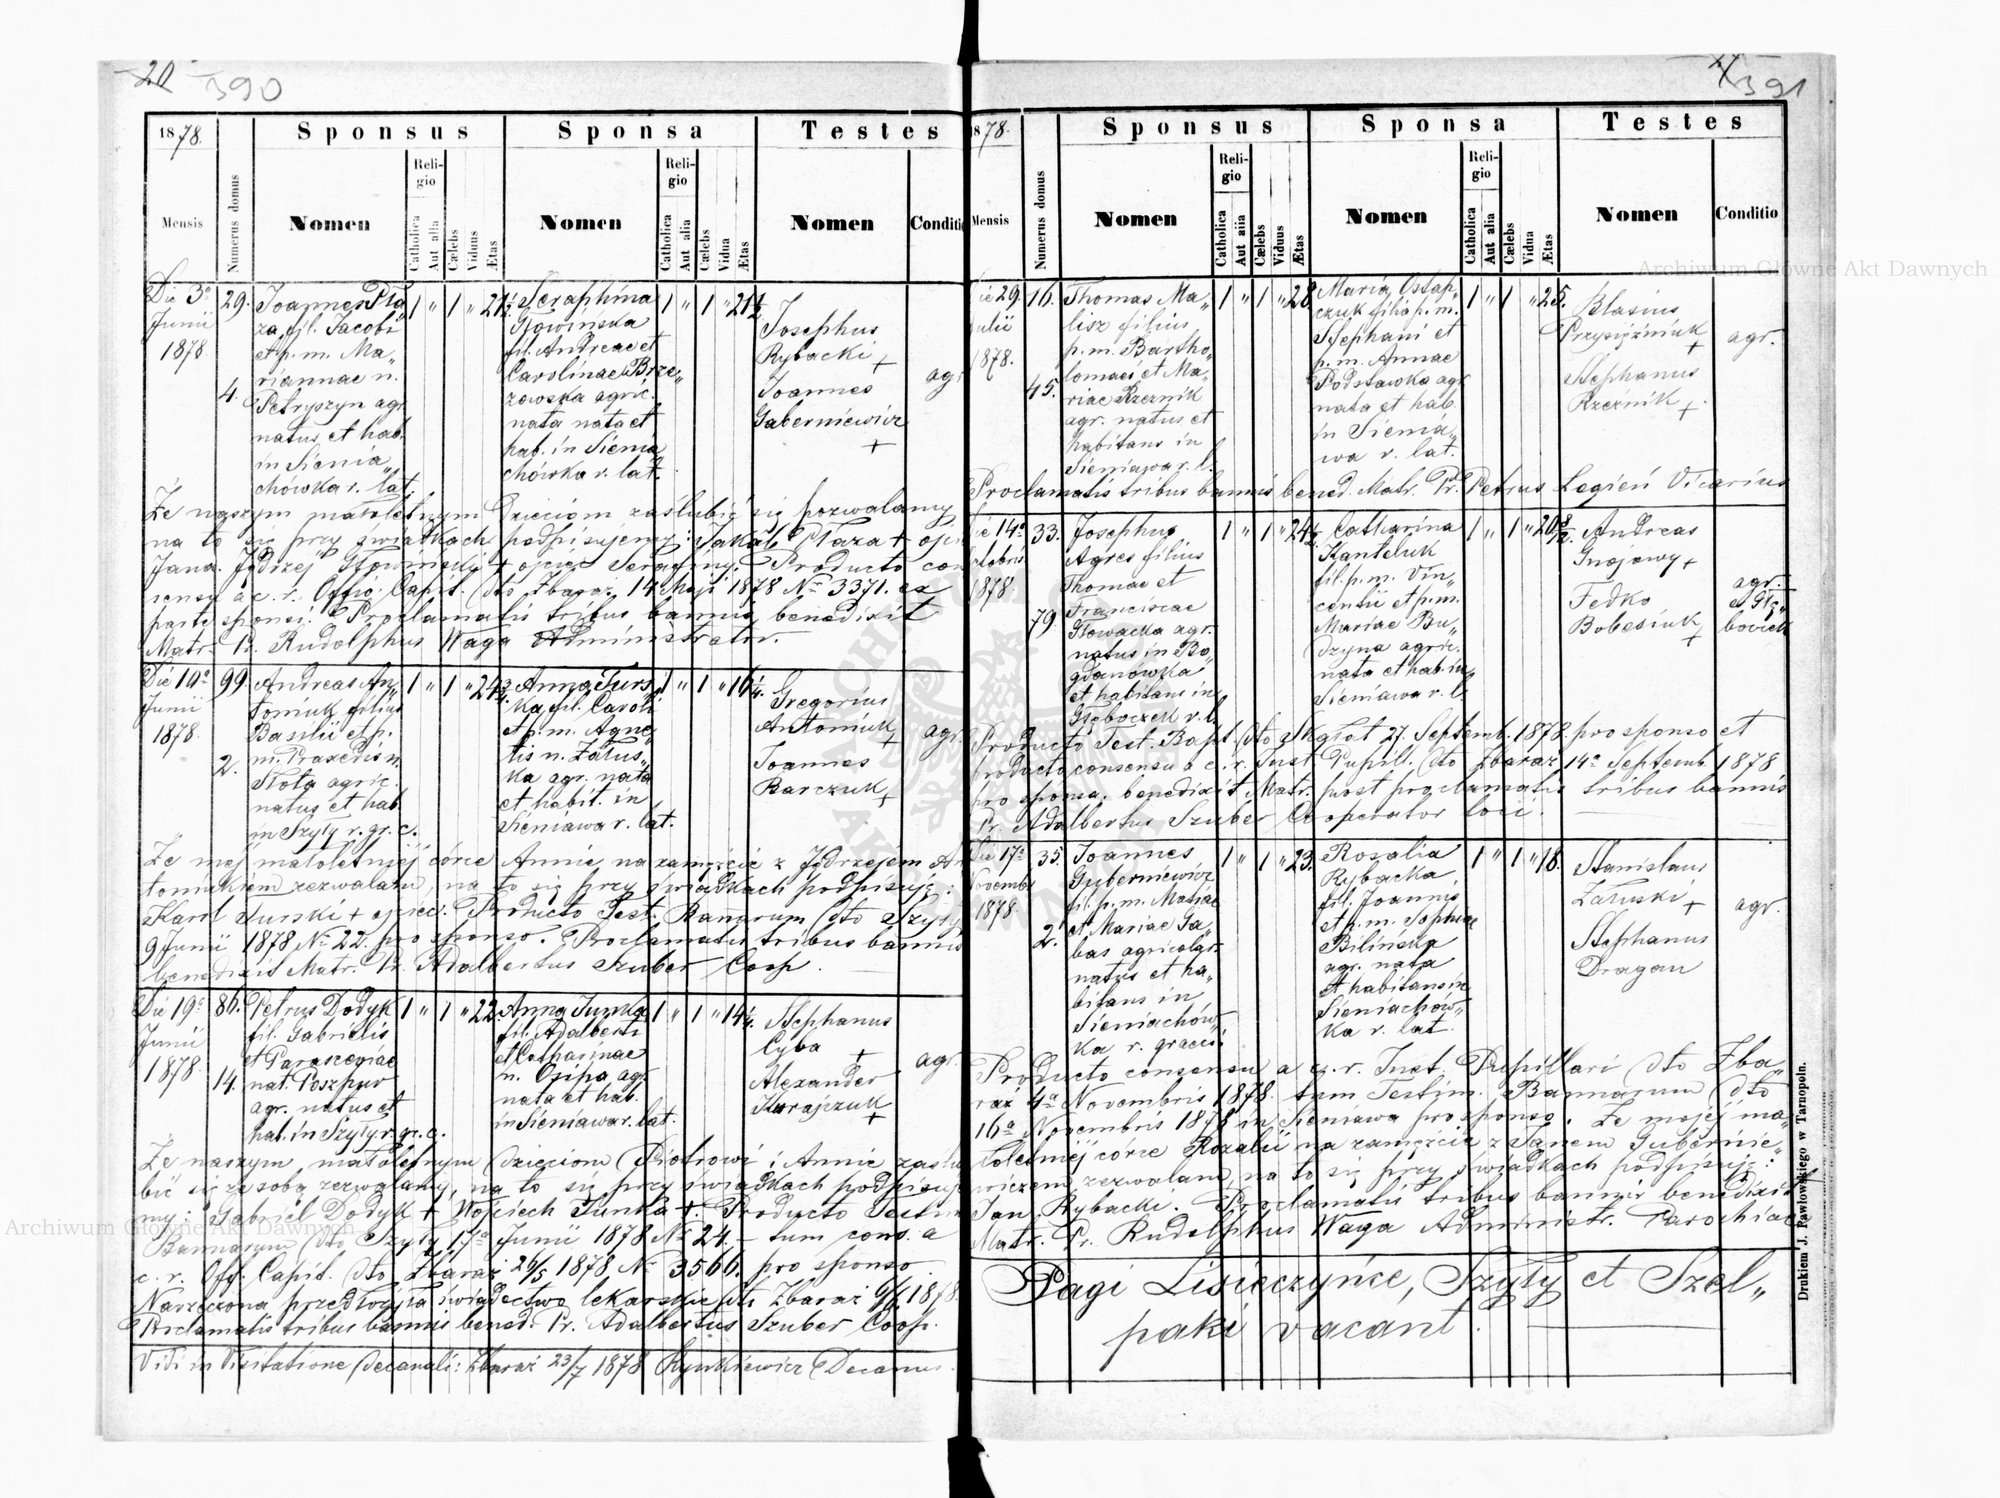 20 390
1878.
Sponsus Sponsa Testes
Mensis
Numerus domus
Nomen
Religio
Catholica
Aut alia
Cælebs
Viduus
Ætas
Nomen
Religio
Catholica
Aut alia
Cælebs
Vidua
Ætas
Nomen
Conditio
Die 3a
Junii
1878.
29.
4.
Joannes Pła„
za, fil. Jacobi
et p. m. Ma„
riannae n.
Petryszyn agr.
natus et hab.
in Sienia„
chówka r. lat.
1 „ 1 „ 21½
Seraphina
Głowińska
fil. Andreae et
Carolinae Brze„
zowska agric.
nata nata et
hab. in Sienia„
chówka r. lat.
1 „ 1 „ 21½
Josephus
Rybacki +
Joannes
Gaberniewicz
+
agr.
Że naszym małoletnym Dzieciom zaślubić się pozwalamy
na to się przy świadkach podpisujemy: Jakób Płaza + ojciec
Jana. Jędrzej Głowiński + ojciec Serafiny. Producto con
sensu a c. r. Offic. Capit. dto Zbaraż 14 Maji 1878 No 3371. ex
parte sponsi. Proclamatis tribus bannis benedixit
Matr. Pr. Rudolphus Waga Administrator.
Die 10a
Junii
1878.
99.
2.
Andreas An„
toniuk filius
Basilii et p.
m. Praxedis n.
Słota agric.
natus et hab.
in Szyły r. gr. c.
1 „ 1 „ 24¾
Anna Turs„
ka, fil. Caroli
et p. m. Agne„
tis n. Załus„
ka agr. nata
et habit. in
Sieniawa r. lat.
1 „ 1 „ 16¼.
Gregorius
Antoniuk
+
Joannes
Barczuk +
agr.
Że mej małoletniej córce Annie na zamęście z Jędrzejem An
toniukiem zezwalam, na to się przy świadkach podpisuję:
Karol Turski + ojciec. Producto Test. Bannorum dto Szyły
9 Junii 1878 No 22. pro sponso. Proclamatis tribus bannis
benedixit Matr. Pr. Adalbertus Szuber Coop.
Die 19a
Junii
1878.
86.
14.
Petrus Dodyk
fil. Gabrielis
et Parasceviae
nat. Poszpur
agr. natus et
hab. in Szyły r. gr. c.
1 „ 1 „ 22.
Anna Tunka
fil. Adalberti
et Catharinae
n. Osipa agr.
nata et hab.
in Sieniawa r. lat.
1 „ 1 „ 14¼.
Stephanus
Cyba
+
Alexander
Kurajczuk
+
agr.
Że naszym małoletnym dzieciom Piotrowi i Annie zaślu
bić się ze sobą zezwalamy, na to się przy świadkach podpisuje
my: Gabriel Dodyk + Wojciech Tunka +. Producto Testim
Bannorum dto Szyły 17a Junii 1878 No 24. – tum cons. a
c. r. Off. Capit. dto Zbaraż 26/5 1878 No 3566. pro sponso.
Narzeczona przedłożyła świadectwo lekarskie dto Zbaraż 1878.
Proclamatis tribus bannis bened. Pr. Adalbertus Szuber Coop.
Vidi in Visitatione decanali: Zbaraż 23/7 1878 Decanus.
391
1878.
Sponsus Sponsa Testes
Mensis
Numerus domus
Nomen
Religio
Catholica
Aut alia
Cælebs
Viduus
Ætas
Nomen
Religio
Catholica
Aut alia
Cælebs
Vidua
Ætas
Nomen
Conditio
Die 29.
Julii
1878.
16.
45.
Thomas Ma„
lisz filius
p. m. Bartho„
lomaei et Ma„
riae Rzeznik
agr. natus et
habitans in
Sieniawa r. l.
1 „ 1 „ 28.
Maria Ostap„
czuk filia p. m.
Stephani et
p. m. Annae
Podstawka agr.
nata et hab.
in Sienia„
wa r. lat.
1 „ 1 „ 25.
Blasius
Przysiężniuk
+
Stephanus
Rzeznik +
agr.
Proclamatis tribus bannis bened. Matr. Pr. Petrus Legień Vicarius
Die 14a
Octobris
1878.
33.
79.
Josephus
Agres filius
Thomae et
Franciscae
Głowacka agr.
natus in Bo„
gdanówka
et habitans in
Głęboczek r. l.
1 „ 1 „ 24½
Catharina
Kanteluk
fil. p. m. Vin„
centii et p. m.
Mariae Bu„
dzyna agric.
nata et hab. in
Sieniawa r. l.
1 „ 1 „ 20 8/12.
Andreas
Gnojowy +
Fedko
Bobesiuk
+
agr.
et Głę„
boczek
Producto Test. Bapt. dto Skałat 27. Septemb. 1878. pro sponso et
producto consensu a c. r. Inst. Pupill. dto Zbaraż 14a Septemb 1878
pro sponsa. benedixit Matr. post proclamatis tribus bannis
Pr. Adalbertus Szuber Cooperator loci.
Die 17a
Novemb.
1878.
35.
2.
Joannes
Guberniewicz
fil. p. m. Mariae
et Mariae Ga„
bas agricolar.
natus et ha„
bitans in
Sieniachów„
ka r. graeci.
1 „ 1 „ 23.
Rosalia
Rybacka
fil. Joannis
et p. m. Sophiae
Bilińska
agr. nata
et habitans in
Sieniachów„
ka r. lat.
1 „ 1 „ 18.
Stanislaus
Załuski +
Stephanus
Dragan
agr.
Producto consensu a c. r. Inst. Pupillari dto Zba„
raż 4a Novembris 1878. tum Testim. Bannorum dto
16a Novembris 1878 in Sieniawa pro sponso. Że mojej ma„
łoletniéj córce Rozalii na zamęście z Janem Gubernie„
wiczem zezwalam, na to się przy świadkach podpisuję:
Jan Rybacki. Proclamatis tribus bannis benedixit
Matr. Pr. Rudolphus Waga Administr. Parochiae
Pagi Lisieczyńce, Szyły et Szel„
paki vacant.
Drukiem J. Pawłowskiego w Tarnopoln.
Archiwum Główne Akt Dawnych
Archiwum Główne Akt Dawnych